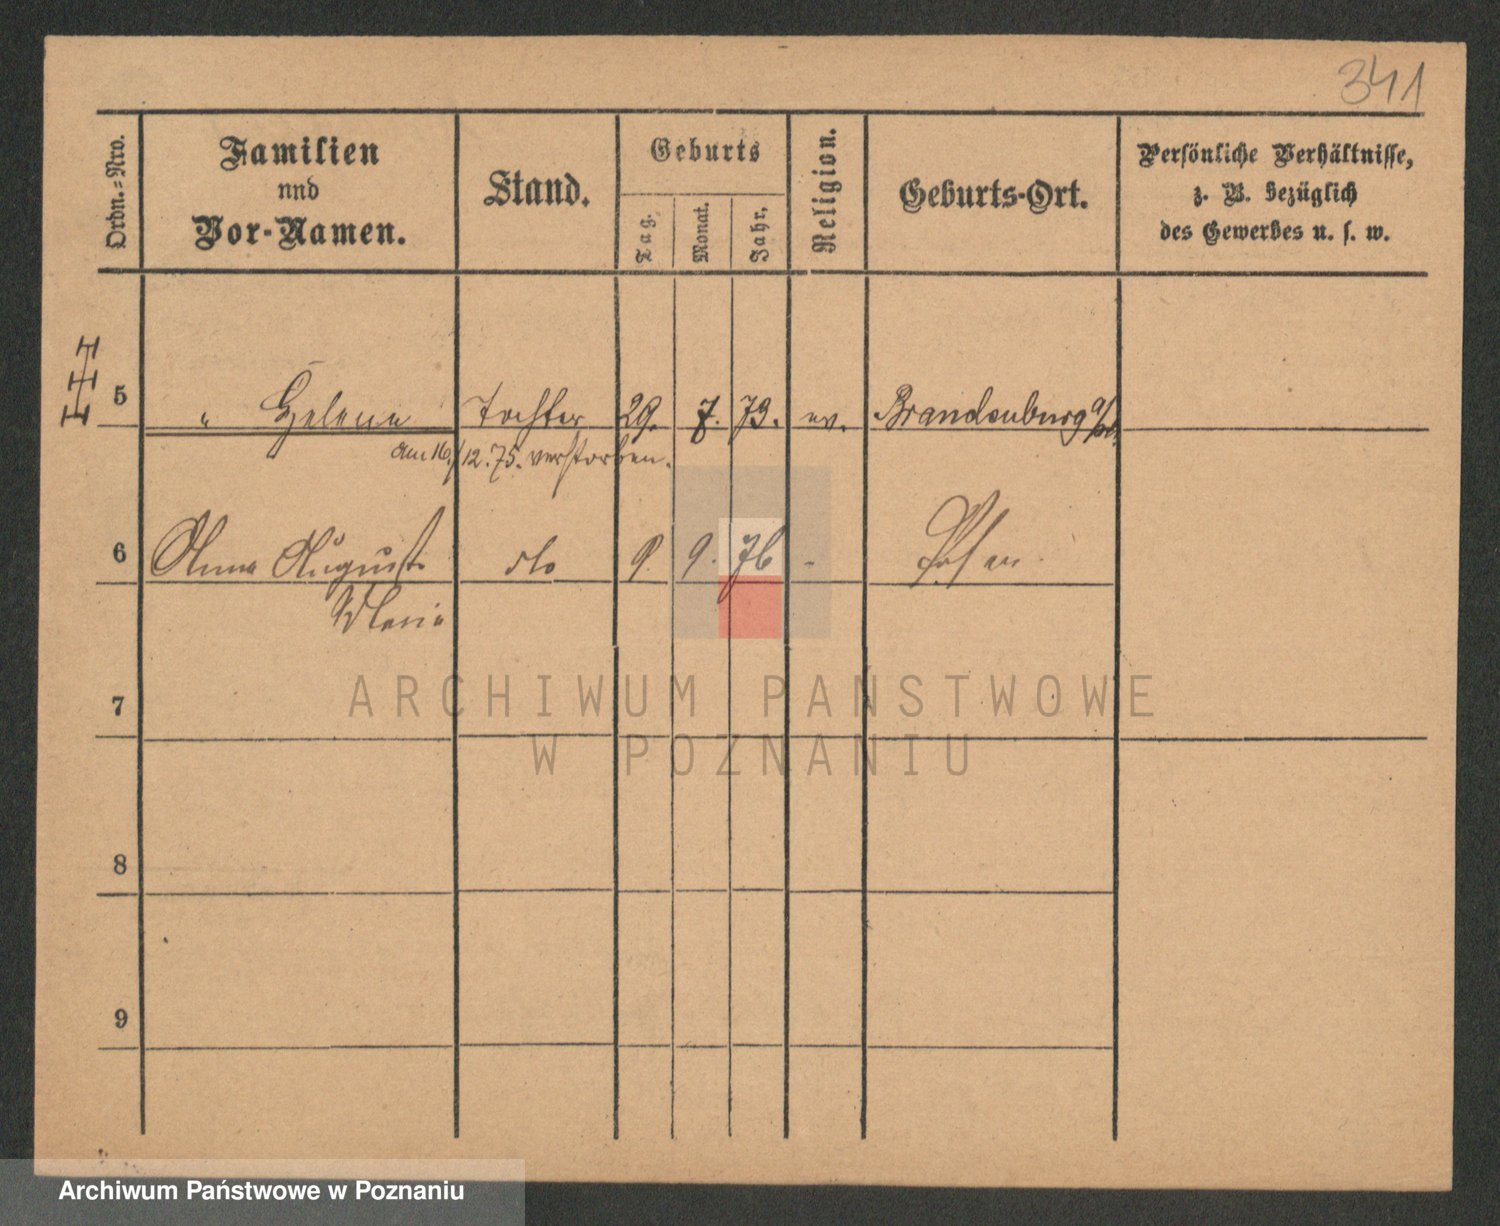 341
Ordn.=Nro.
Familien
und
Vor-Namen.
Stand.
Geburts
Tag.
Monat.
Jahr.
Religion.
Geburts-Ort.
Persönliche Verhältnisse,
z. B. bezüglich
des Gewerbes u. s. w.
5 " Helene Tochter 29. 7. 73. ev. Brandenburg a/H.
am 16/12.75. verstorben.
6 Anna August. do 9. 9. 76 - Posen
Maria
7
8
9
ARCHIWUM PAŃSTWOWE
W POZNANIU
Archiwum Państwowe w Poznaniu